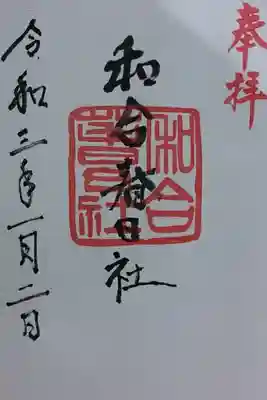 奉拝
和合春日社
和合春日社
令和三年一月二日